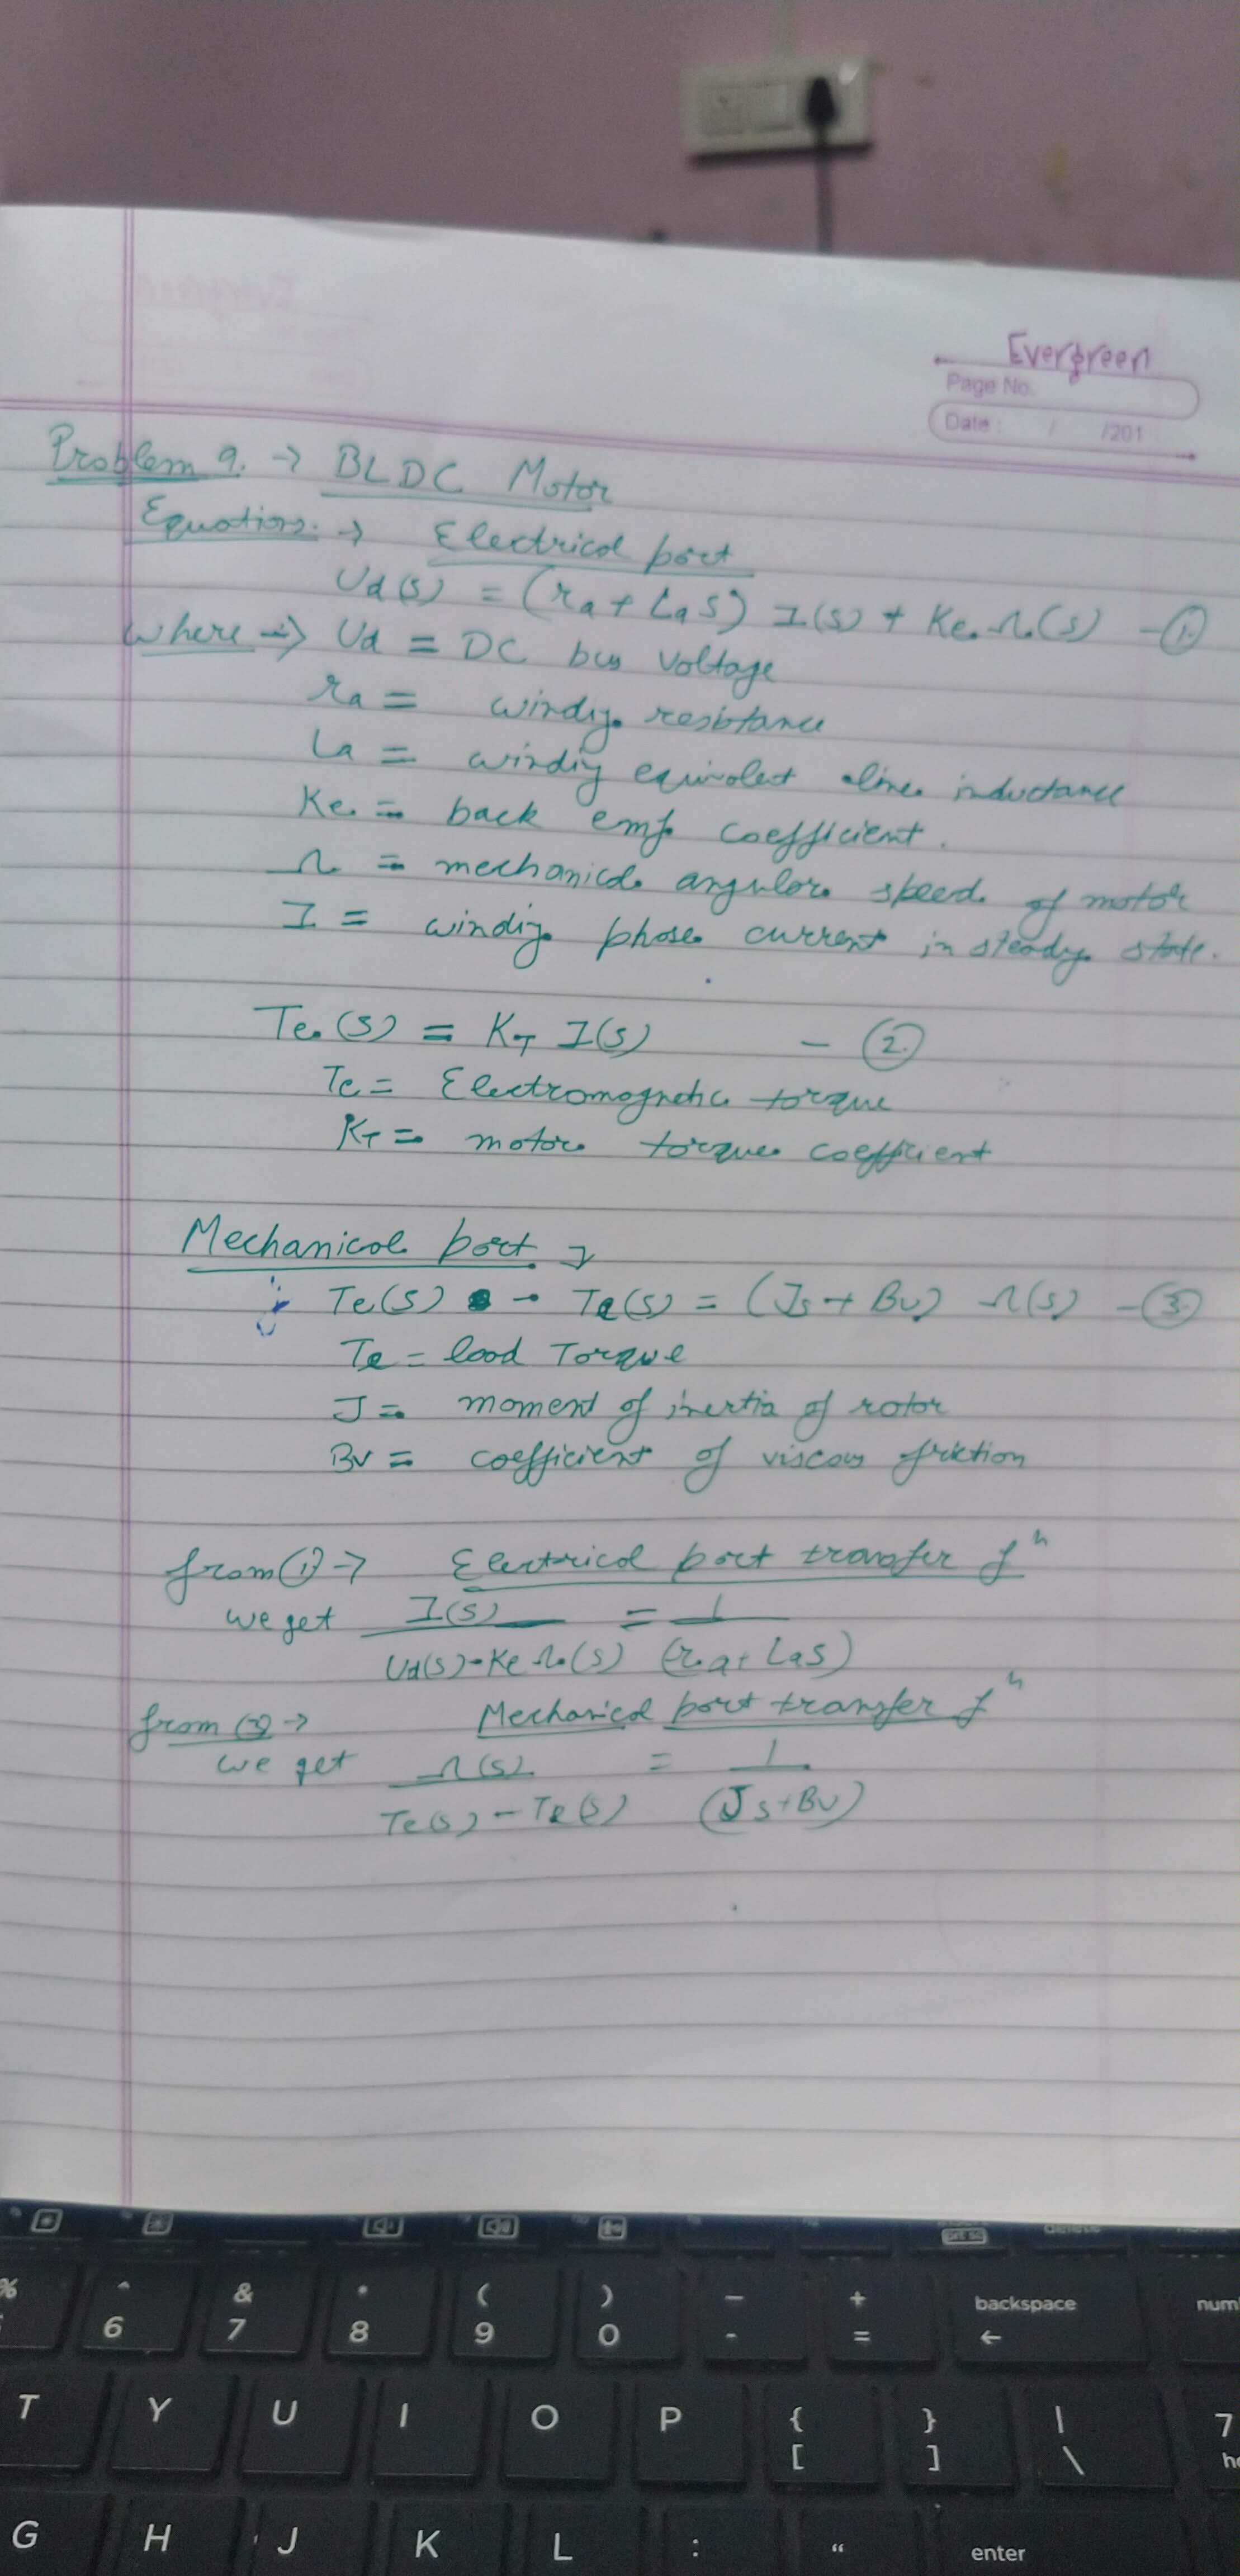 Evergreen
Page No.
Date : / /201
Problem 9. → BLDC Motor
Equations. → Electrical part
Ud(s) = (ra + Las) I(s) + Ke Ω(s) - ①
where → Ud = DC bus voltage
ra = winding resistance
La = winding equivalent line inductance
Ke = back emf coefficient.
Ω = mechanical angular speed of motor
I = winding phase current in steady state.
Te(s) = KT I(s) - ②
Te = Electromagnetic torque
KT = motor torque coefficient
Mechanical part →
Te(s) - Tl(s) = (Js + Bv) Ω(s) - ③
Tl = load Torque
J = moment of inertia of rotor
Bv = coefficient of viscous friction
from (1) → Electrical part transfer fⁿ
we get I(s) = 1
Ud(s) - Ke Ω(s) (ra + Las)
from (3) → Mechanical part transfer fⁿ
we get Ω(s) = 1
Te(s) - Tl(s) (Js + Bv)
prt sc
delete
%
^ & * ( ) _ + backspace num
6 7 8 9 0 - = ←
T Y U I O P { } | 7
[ ] \
G H J K L : “ enter